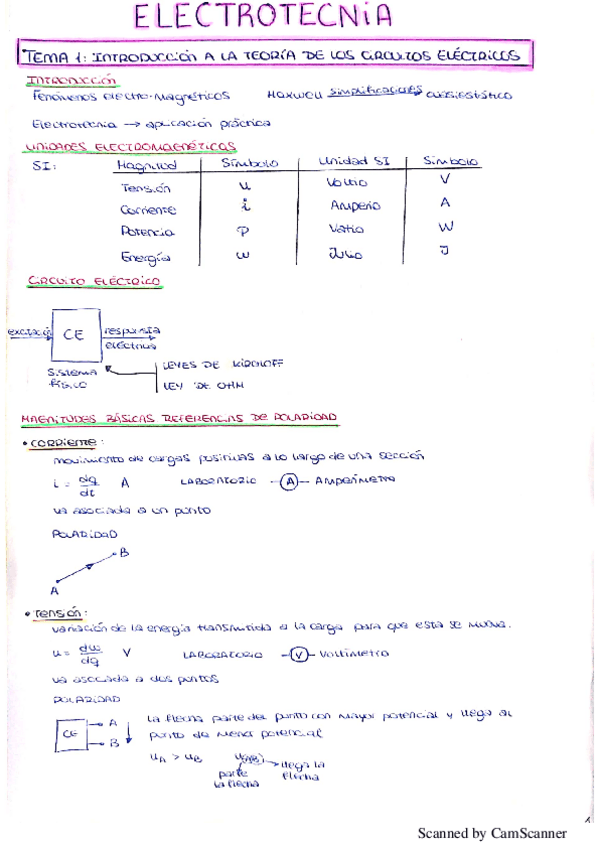 ELECTROTECNIA
TEMA 1: INTRODUCCIÓN A LA TEORÍA DE LOS CIRCUITOS ELÉCTRICOS
INTRODUCCIÓN
Fenómenos electro-magnéticos Maxwell simplificaciones cuasiestático
Electrotecnia → aplicación práctica
UNIDADES ELECTROMAGNÉTICAS
SI: Magnitud Símbolo Unidad SI Símbolo
Tensión u Voltio V
Corriente i Amperio A
Potencia p Vatio W
Energía w Julio J
CIRCUITO ELÉCTRICO
excitación CE respuesta
eléctrica
SISTEMA
físico
LEYES DE KIRCHOFF
LEY DE OHM
MAGNITUDES BÁSICAS REFERENCIAS DE POLARIDAD
• CORRIENTE:
movimiento de cargas positivas a lo largo de una sección
i = dq/dt A LABORATORIO A AMPERÍMETRO
va asociada a un punto
POLARIDAD
B
A
• TENSIÓN:
variación de la energía transmitida a la carga para que esta se mueva.
u = dw/dq V LABORATORIO V VOLTÍMETRO
va asociada a dos puntos
POLARIDAD
CE A B
la flecha parte del punto con mayor potencial y llega al
punto de menor potencial
uA > uB u(AB)
parte
la flecha
llega la
flecha
1
Scanned by CamScanner